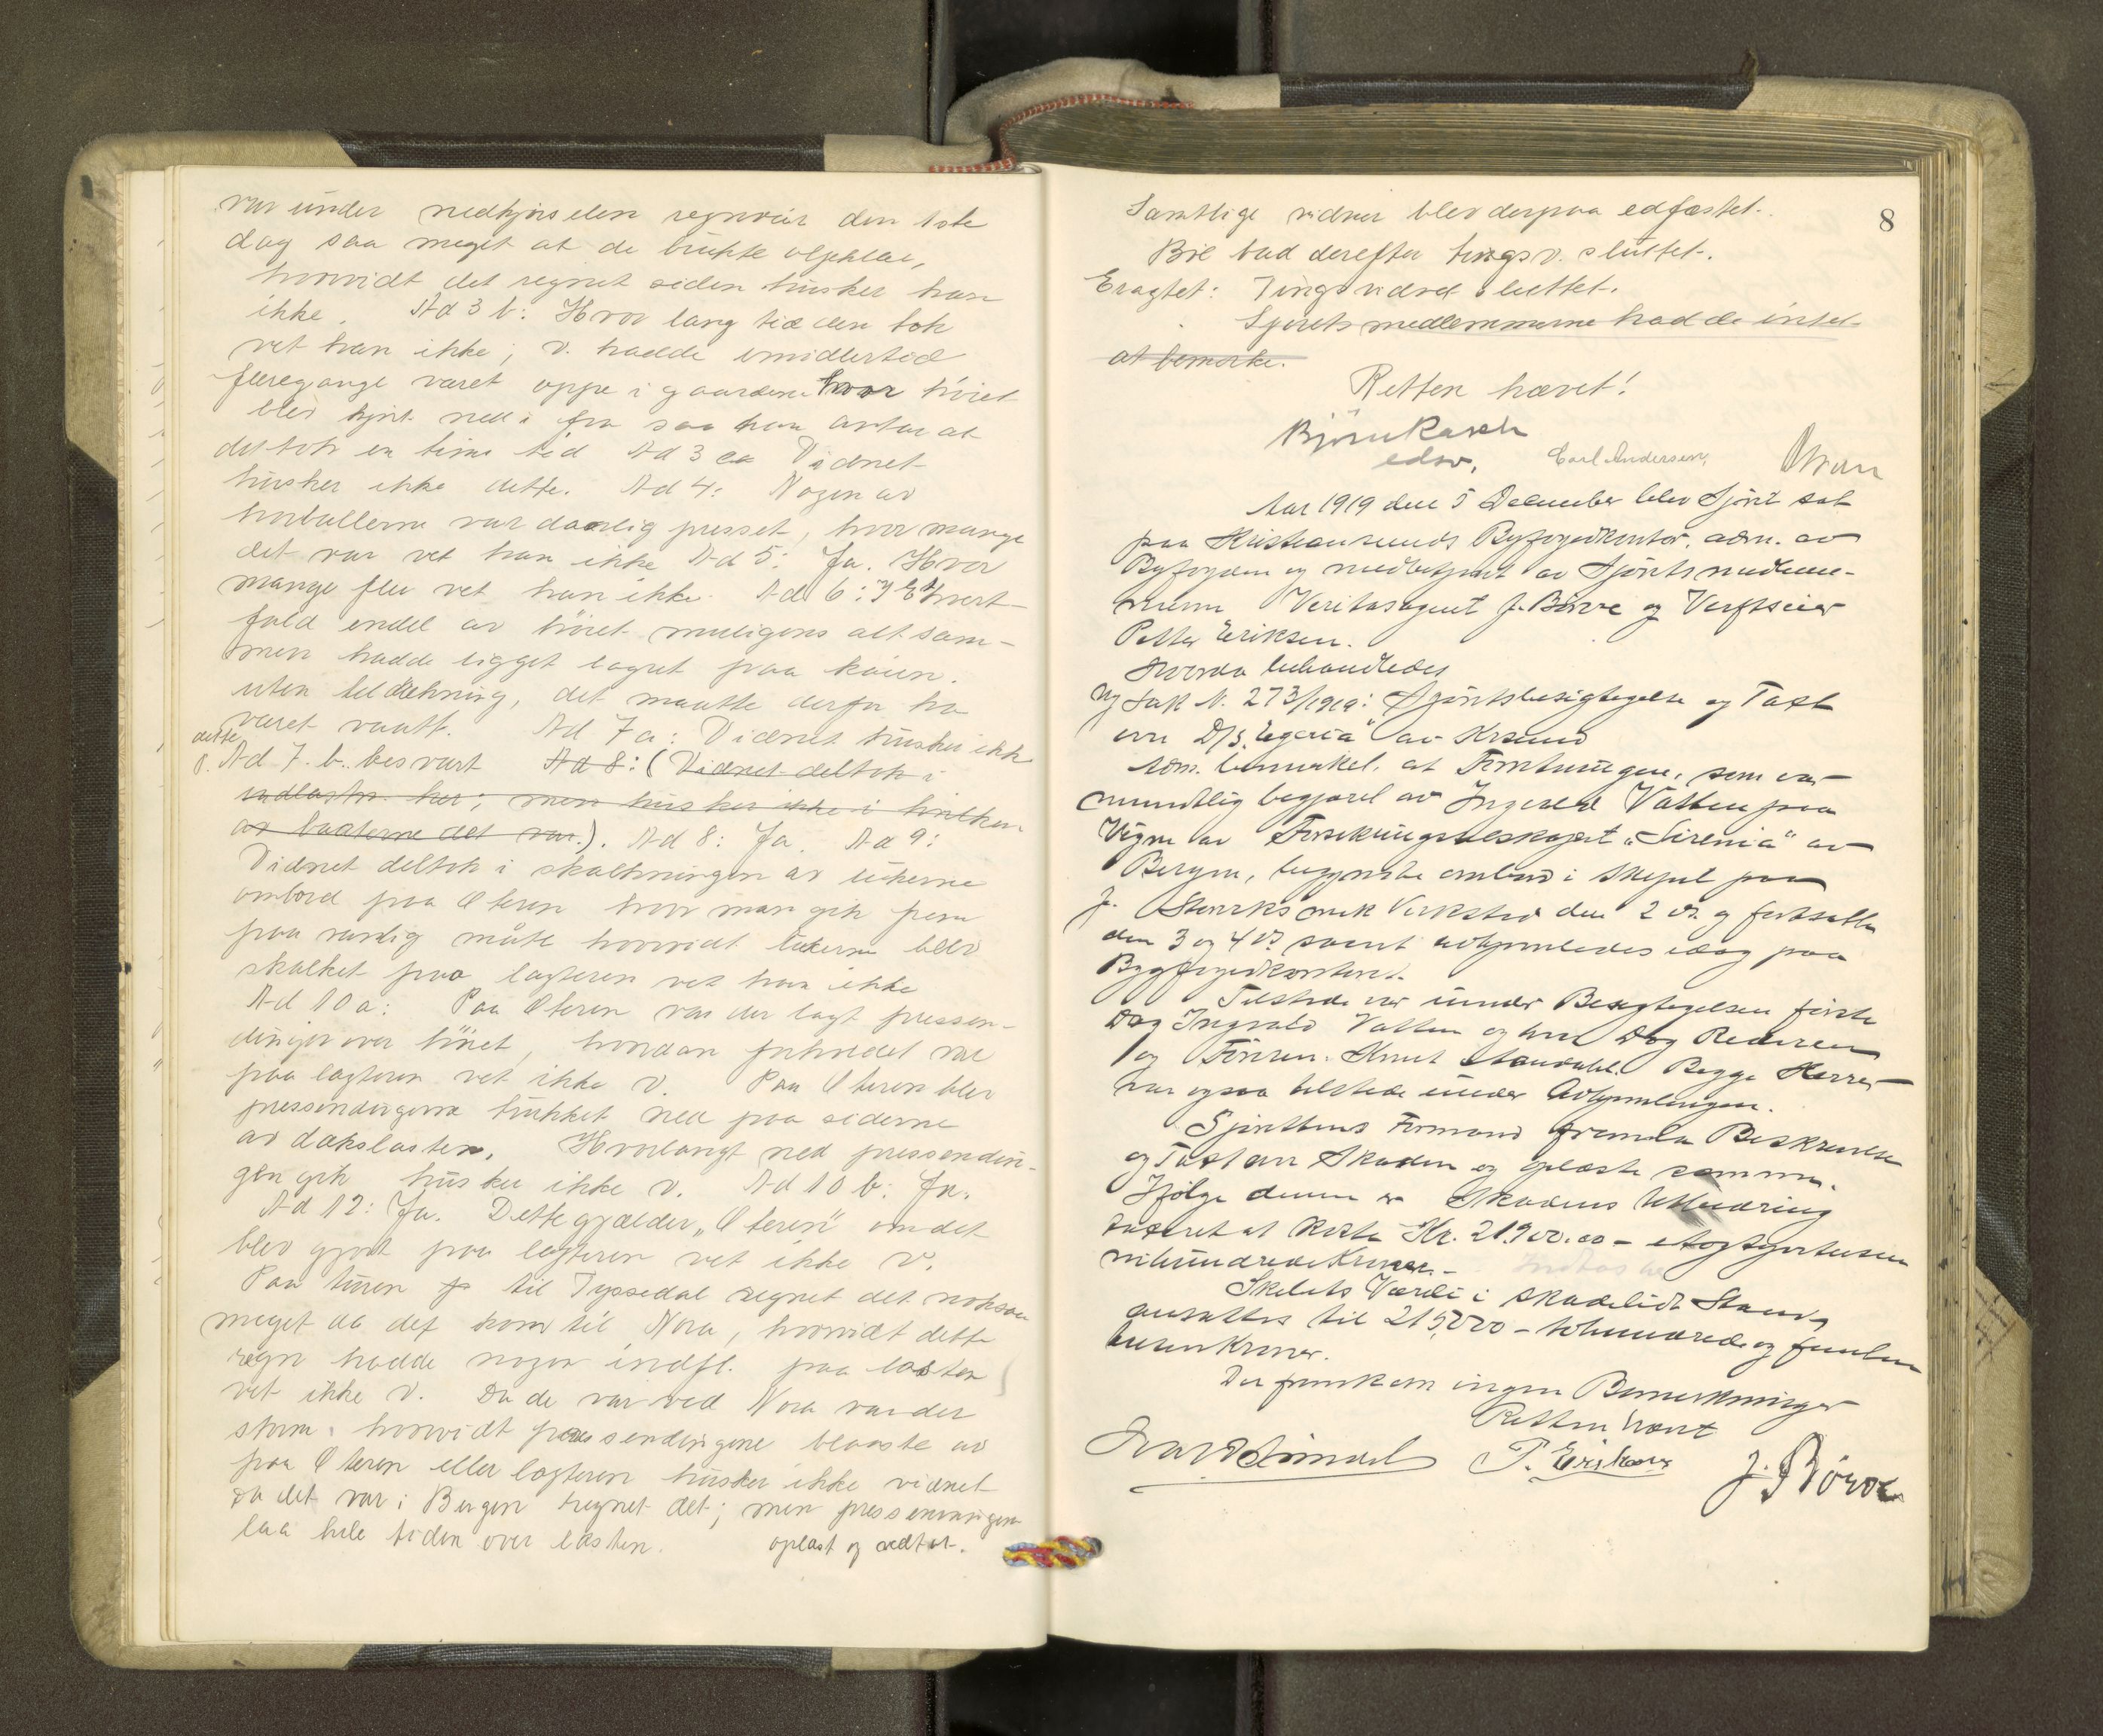 var under nedkjørselen regnveir den 1ste
dag saa meget at de brukte oljeklær,
hvorvidt det regnet siden husker han
ikke. Ad 3 b: Hvor lang tid den tok
vet han ikke; v. hadde imidlertid
fleregange været oppe i gaardene hvor höiet
blev kjørt ned i fra saa han antar at
det tok en times tid Ad 3 ca Vidnet
husker ikke dette. Ad 4: Nogen av
höiballerne var daarlig presset, hvor mange
det var vet han ikke Ad 5: Ja. Hvor
mange flere vet han ikke. Ad 6: I Ethvert
fald endel av höiet muligens alt sam-
men hadde ligget lagret paa kaien
uten tildækning, det maatte derfor ha
været vaatt. Ad 7 a: Vidnet husker ikke
dette
Ad 7. b. besvart Ad 8: (Vidnet deltok i
indlastn. her; men husker ikke i hvilken
av baaterne det var.). Ad 8: Ja. Ad 9:
Vidnet deltok i skalkningen av lukerne
ombord paa Oteren hvor man gik frem
paa vanlig måte hvorvidt lukerne blev
skalket paa lagteren vet han ikke
Ad 10 a: Paa Oteren var der lagt pressen-
dinger over höiet, hvordan forholdet var
paa lagteren vet ikke v. Paa Oteren blev
pressendingerne trukket ned paa siderne
av dækslasten. Hvorlangt ned pressendin-
gen gik husker ikke v. Ad 10 b: Ja.
Ad 12: Ja. Dette gjælder „Oteren" om det
blev gjort paa lagteren vet ikke v.
Paa turen til Tyssedal regnet det noksaa
meget da det kom til Nora, hvorvidt dette
regn hadde nogen indfl. paa lasten
vet ikke v. Da de var ved Nora var der
storm. hvorvidt pressendingene blaaste av
paa Oteren eller lagteren husker ikke vidnet
Da det var i Bergen regnet det; men pressenningen
laa hele tiden over lasten. oplæst og vedtat.
8
Samtlige vidner blev derpaa edfæstet.
Bie bad derefter tingsv. sluttet.
Eragtet: Tingsvidnet sluttet.
Sjøretsmedlemmerne hadde intet
at bemerke.
Retten hævet!
Bjørn Rasch
edsv. Carl Andersen,
Aar 1919 den 5 December blev Sjöret sat
paa Kristiansunds Byfogedkontor, adm. av
Byfogden og medbetjent av Sjöretsmedlem-
merne Veritasagent J. Börve og Verftseier
Petter Eriksen.
Hvorda behandledes
Ny Sak N. 273/1919: Sjöretsbesigtigelse og Taxt
over D/S. „Egeria" av Krsund
Adm. bemerket, at Forretningen, som var
mundtlig begjæret av Ingvald Vatten paa
Vegne av Forsikringsselskapet „Sirenia" av
Bergen, begyndte ombord i Skipet paa
J. Storviks mek Verksted den 2 ds. og fortsatte
den 3 og 4 ds samt avhjemledes idag paa
Byfogedkontoret.
Tilstede var under Besigtigelsen första
Dag Ingvald Vatten og hver Dag Rederen
og Föreren. Knut Begge Herrer
var ogsaa tilstede under Avhjemlingen.
Sjörettens Formand fremla Beskrivelse
og Taxt over Skaden og oplæste samme.
Ifölge denne er Skadens Utbedring
taxeret at koste Kr. 21.900.00 – enogtyvetusen
nihundrede Kroner. –
Skibets Værdi i skadelidt Stand
ansattes til 215,000 – tohundrede og femten
tusen Kroner.
Der fremkom ingen Bemerkninger
Retten hævet
P. Eriksen J. Börve